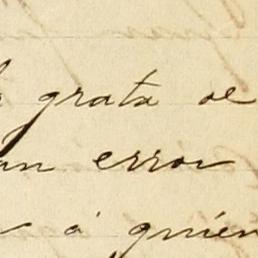 grata de
un error
á quien